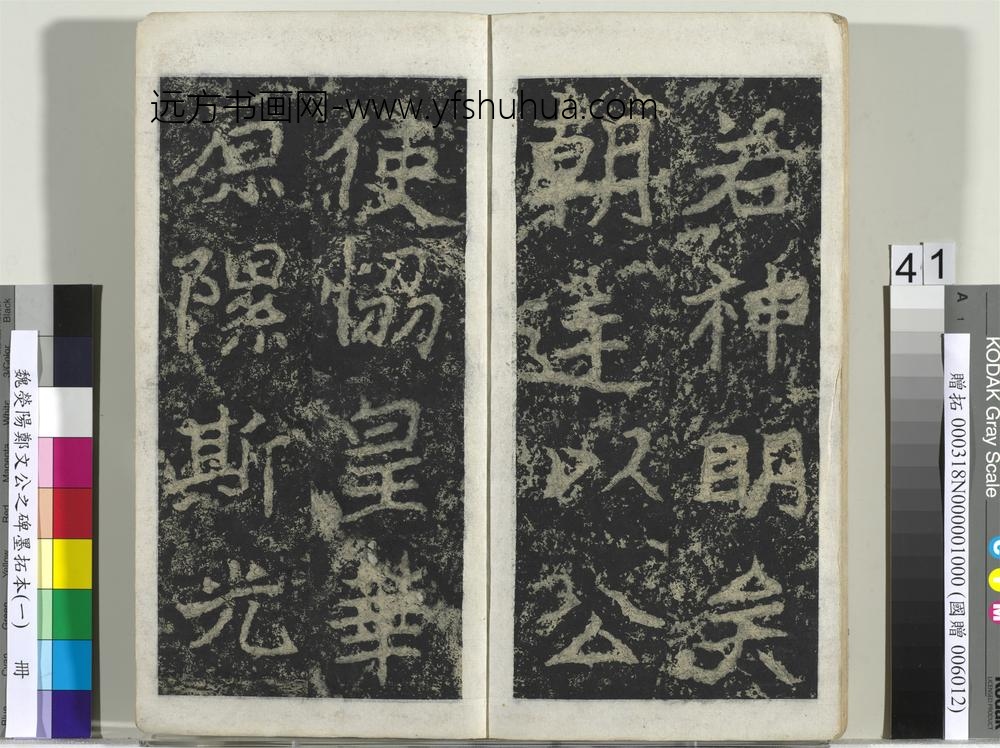 若神明矣
朝廷以公
使協皇華
原隰斯光
远方书画网-www.yfshuhua.com
41
魏滎陽鄭文公之碑墨拓本(一) 冊
贈拓 000318N000001000 (國贈 006012)
KODAK Gray Scale
A 1
Black
3/Color
White
Magenta
Red
Yellow
Green
Cyan
Blue
LICENSED PRODUCT
C
Y
M